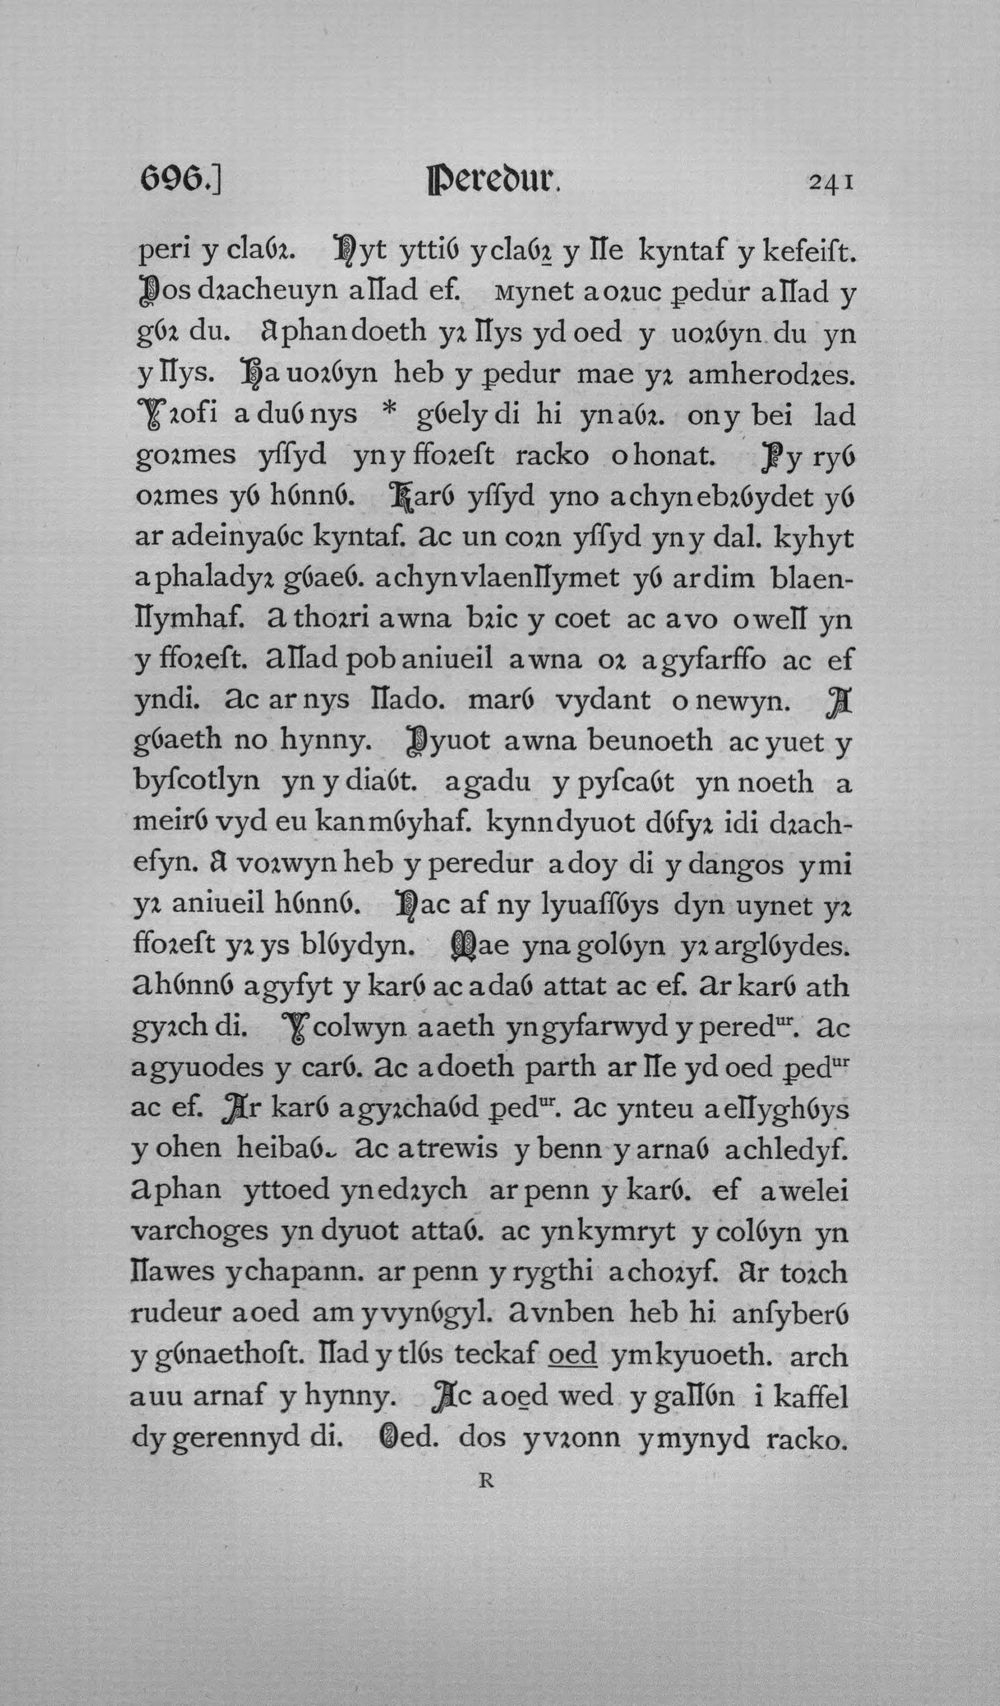 696.] Peredur. 241
peri y claỽꝛ. Nyt yttiỽ yclaỽꝛ̲ y lle kyntaf y kefeiſt.
Dos dꝛacheuyn aỻad ef. Mynet aoꝛuc ꝑedur aỻad y
gỽꝛ du. Aphandoeth yꝛ ỻys yd oed y uoꝛỽyn du yn
y ỻys. Ha uoꝛỽyn heb y ꝑedur mae yꝛ amherodꝛes.
Yꝛofi a duỽ nys * gỽely di hi ynaỽꝛ. ony bei lad
goꝛmes yſſyd yny ffoꝛeſt racko ohonat. Py ryỽ
oꝛmes yỽ hỽnnỽ. Karỽ yſſyd yno achynebꝛỽydet yỽ
ar adeinyaỽc kyntaf. ac un coꝛn yſſyd yny dal. kyhyt
aphaladyꝛ gỽaeỽ. achynvlaenỻymet yỽ ardim blaen-
ỻymhaf. a thoꝛri awna bꝛic y coet ac avo oweỻ yn
y ffoꝛeſt. aỻad pob aniueil awna oꝛ agyfarffo ac ef
yndi. ac ar nys ỻado. marỽ vydant o newyn. A
gỽaeth no hynny. Dyuot awna beunoeth ac yuet y
byſcotlyn yn y diaỽt. agadu y pyſcaỽt yn noeth a
meirỽ vyd eu kanmỽyhaf. kynndyuot dỽfyꝛ idi dꝛach-
efyn. A voꝛwyn heb y peredur adoy di y dangos ymi
yꝛ aniueil hỽnnỽ. Nac af ny lyuaſſỽys dyn uynet yꝛ
ffoꝛeſt yꝛ ys blỽydyn. Mae yna golỽyn yꝛ arglỽydes.
ahỽnnỽ agyfyt y karỽ ac adaỽ attat ac ef. ar karỽ ath
gyꝛch di. Y colwyn aaeth yngyfarwyd y peredᵘʳ. ac
agyuodes y carỽ. ac adoeth parth ar ỻe yd oed ꝑedᵘʳ
ac ef. Ar karỽ agyꝛchaỽd ꝑedᵘʳ. ac ynteu aeỻyghỽys
y ohen heibaỽ. ac atrewis y benn y arnaỽ achledyf.
aphan yttoed ynedꝛych ar penn y karỽ. ef awelei
varchoges yn dyuot attaỽ. ac ynkymryt y colỽyn yn
ỻawes ychapann. ar penn y rygthi achoꝛyf. ar toꝛch
rudeur aoed am yvynỽgyl. avnben heb hi anſyberỽ
y gỽnaethoſt. ỻad y tlỽs teckaf oed ymkyuoeth. arch
auu arnaf y hynny. Ac aoed wed y gaỻỽn i kaffel
dy gerennyd di. Oed. dos yvꝛonn ymynyd racko.
R